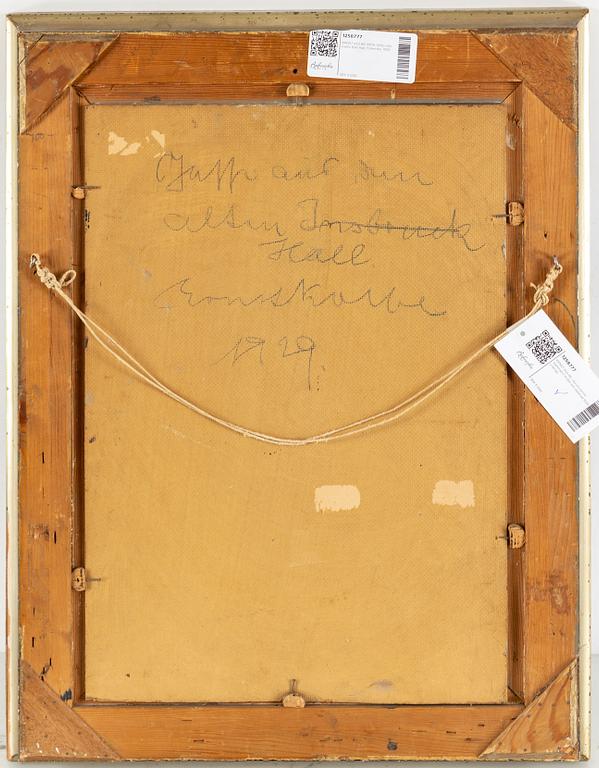 1258777
Gasse aus dem
alten Innsbruck
Hall
Ernst Kolbe
1929
1258777